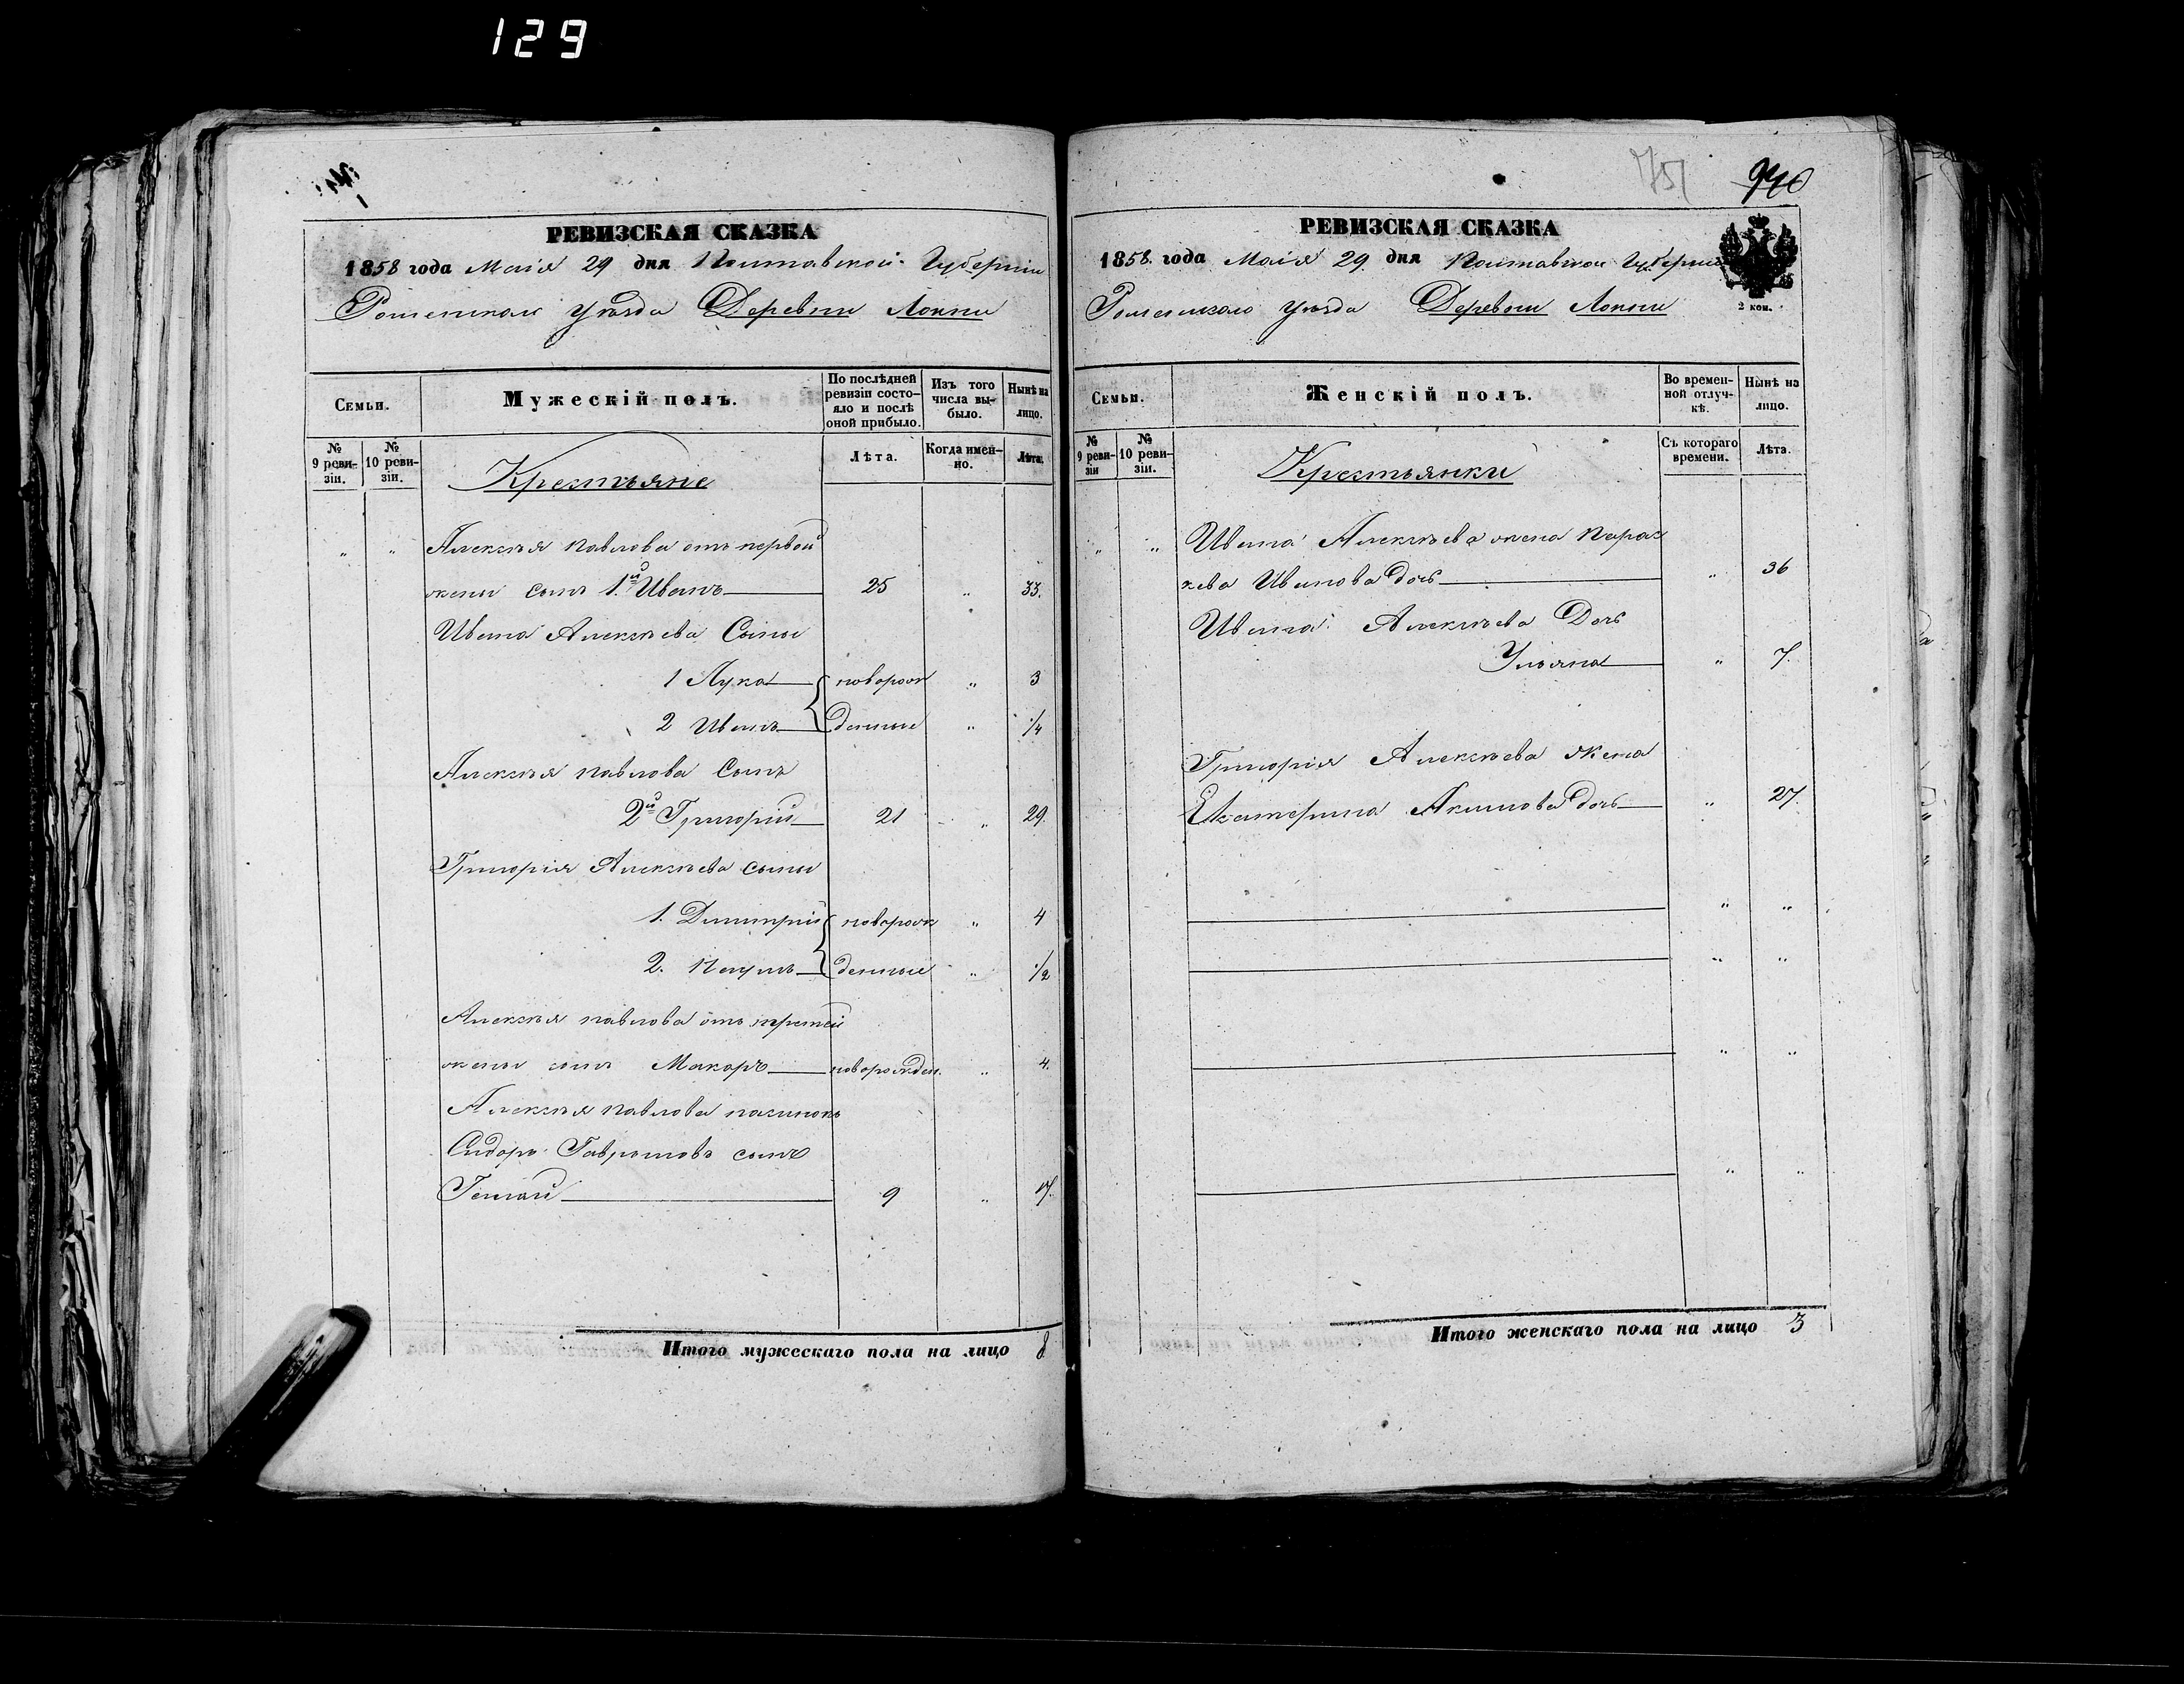 129
РЕВИЗСКАЯ СКАЗКА
1858 года Маія 29 дня Полтавской Губерніи
Роменскаго Уѣзда Деревни Локни
Семьи.
Мужескій полъ.
По послѣдней ревизіи состояло и послѣ оной прибыло.
Изъ того числа выбыло.
Нынѣ на лицо.
№ 9 ревизіи.
№ 10 ревизіи.
Крестьяне
Лѣта.
Когда именно.
Лѣта.
" " Алексѣя Павлова отъ первой
жены сынъ 1.й Иванъ 25 " 33.
Ивана Алексѣева Сыны
1 Лука новорож " 3
2 Иванъ денные " 1/4
Алексѣя Павлова Сынъ
2й Григорій 21 " 29.
Григорія Алексѣева сыны
1. Дмитрій новорож " 4
2. Наумъ денные " 1/2
Алексѣя Павлова отъ третей
жены сынъ Макаръ новорожден. " 4.
Алексѣя Павлова пасынокъ
Сидоръ Гавриловъ сынъ
9 " 17.
Итого мужескаго пола на лицо 8
751
940
РЕВИЗСКАЯ СКАЗКА
1858. года Маія 29. дня Полтавской Губерніи
Роменскаго Уѣзда Деревни Локни
2 коп.
Семьи.
Женскій полъ.
Во временной отлучкѣ.
Нынѣ на лицо.
№ 9 ревизіи
№ 10 ревизіи.
Крестьянки
Съ котораго времени.
Лѣта.
" " Ивана Алексѣева жена Парас
кева Иванова дочь " 36
Ивана Алексѣева Дочь
Ульяна " 7.
Григорія Алексѣева Жена
Екатерина Акимова дочь " 27.
" "
" "
" "
" "
Итого женскаго пола на лицо 3